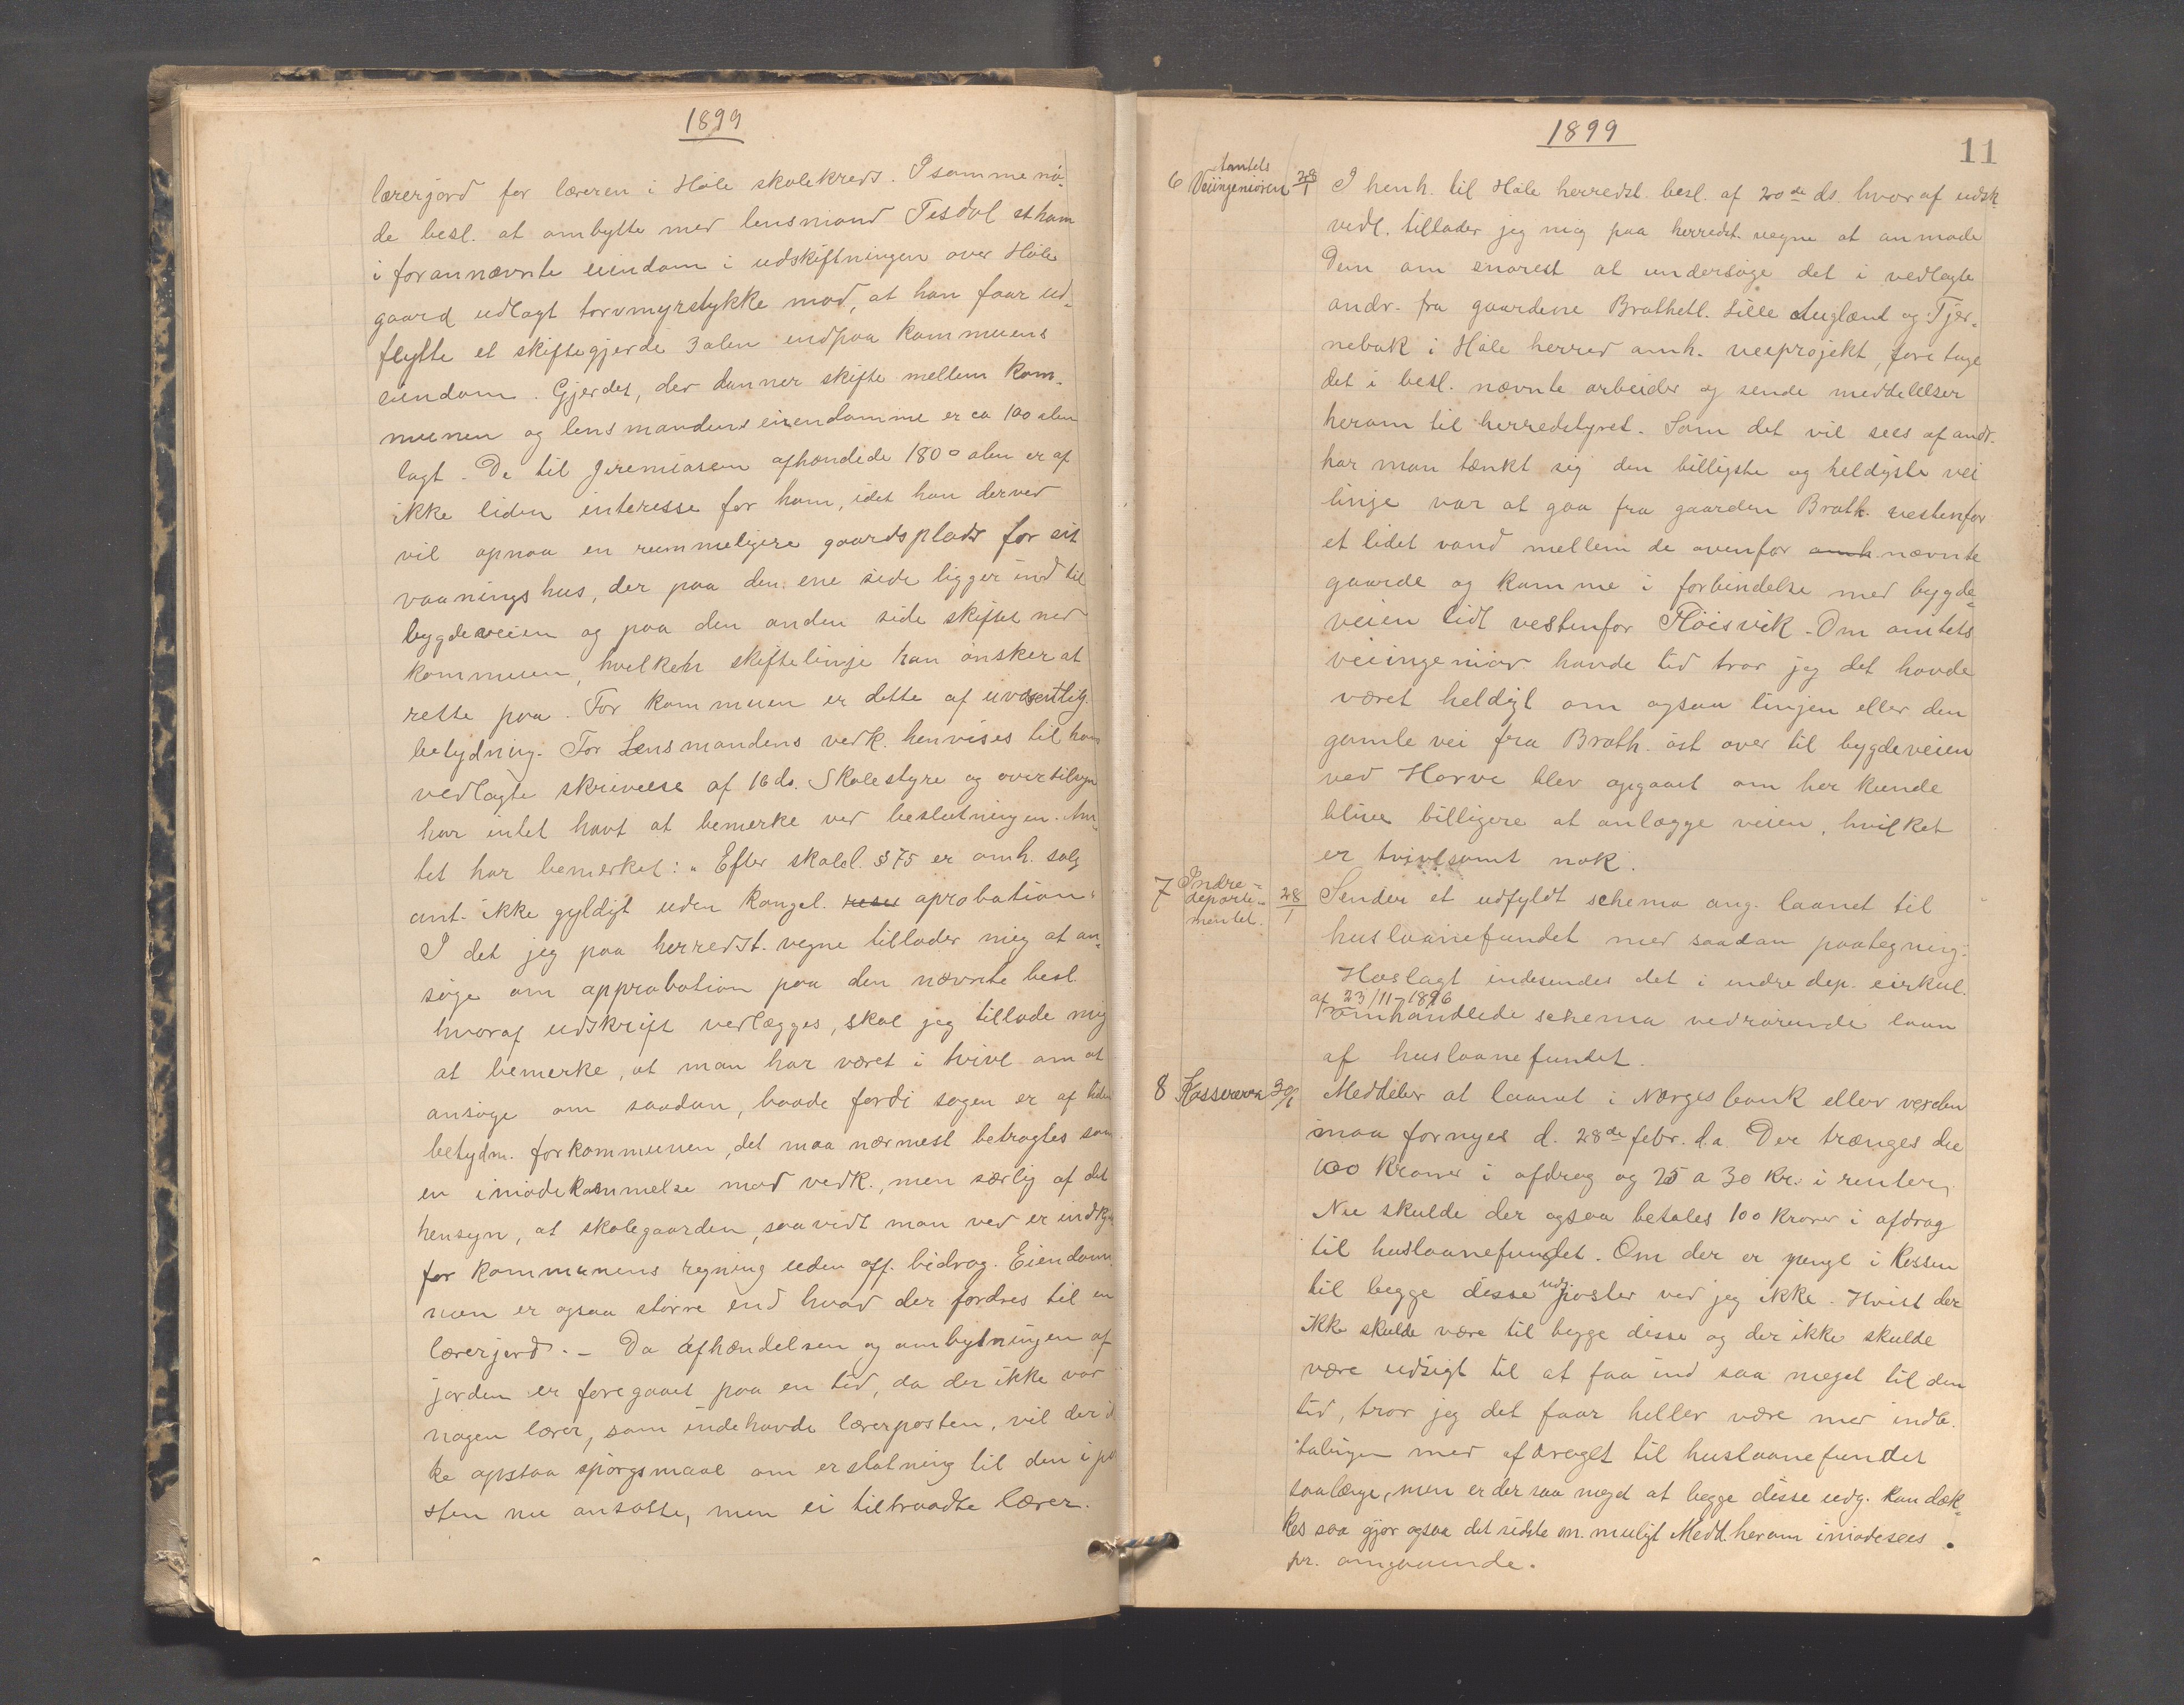 1899
lærerjord for læreren i Høle skolekreds. I samme mø-
de besl. at ombytte med lensmand Tesdal et ham
i forannævnte eiendom i udskiftningen over Høle
gaard udlagt torvmyrstykke mod, at han faar ud-
flytte et skiftegjerde 3 alen indpaa kommuens
eiendom. Gjerdet, der danner skifte mellem kom-
munen og lensmandens eiendomme er ca 100 alen
lagt. De til Jeremiasen afhændede 180 □ alen er af
ikke liden interesse for ham, idet han derved
vil opnaa en rummeligere gaardsplads for sit
vaaningshus, der paa den ene side ligger ind til
bygdeveien og paa den anden side skiftet med
kommuen, hvilken skiftelinje han ønsker at
rette paa. For kommuen er dette af uvæsentlig
betydning. For Lensmandens vedk. henvises til hans
vedlagte skrivelse af 16 ds. Skolestyre og overtilsyn
har intet havt at bemerke ved beslutningen. Am-
tet har bemerket: „Efter skolel. § 75 er omh. salg
ant. ikke gyldigt uden kongel. aprobation“
I det jeg paa herredst. vegne tillader mig at an-
søge om approbation paa den nævnte besl.
hvoraf udskrift vedlægges, skal jeg tillade mig
at bemerke, at man har været i tvivl om at
ansøge om saadan, baade fordi sagen er af liden
betydn. for kommunen, det maa nærmest betragtes som
en imødekommelse mod vedk., men særlig af det
hensyn, at skolegaarden, saavidt man ved er indkj
for kommunens regning uden off. bidrag. Eiendom-
men er ogsaa større end hvad der fordres til en
lærerjord. – Da afhændelsen og ombytningen af
jorden er foregaaet paa en tid, da der ikke var
nogen lærer, som indehavde lærerposten, vil der ik
ke opstaa spørgsmaal om erstatning til den i po
sten nu ansatte, men ei tiltraadte lærer.
1899
11
6 Amtets
Veiingeniøren 28/1
I henh. til Høle herredst. besl. af 20de ds. hvoraf udsk.
vedl. tillader jeg mig paa herredst. vegne at anmode
Dem om snarest at undersøge det i vedlagte
andr. fra gaardene Brathetl. Lille Auglænd og Tjør-
nebak i Høle herred omh. veiprojekt, foretage
det i besl. nævnte arbeider og sende meddelelser
herom til herredstyret. Som det vil sees af andr.
har man tænkt sig den billigste og heldigste vei
linje var at gaa fra gaarden Brath. vestenfor
et lidet vand mellem de ovenfor omh nævnte
gaarde og komme i forbindelse med bygde-
veien lidt vestenfor Fløisvik. Om amtets
veiingeniør havde tid tror jeg det havde
været heldigt om ogsaa linjen eller den
gamle vei fra Brath. øst over til bygdeveien
ved Horve blev opgaaet om her kunde
blive billigere at anlægge veien, hvilket
er tvivlsomt nok.
7 Indre-
departe-
mentet. 28/1
Sender et udfyldt schema ang. laanet til
huslaanefundet med saadan paategning:
Hoslagt indesendes det i indre dep. cirkul.
af 23/11–1896
omhandlede schema vedrørende laan
af huslaanefundet.
8 Kassereren 30/1
Meddeler at laanet i Norges bank eller vexelen
maa fornyes d. 28de febr. d.a. Der trænges da
100 Kroner i afdrag og 25 a 30 Kr. i renter,
Nu skulde der ogsaa betales 100 kroner i afdrag
til huslaanefundet. Om der er penge i Kassen
til begge disse udg. poster ved jeg ikke. Hvist der
ikke skulde være til begge disse og der ikke skulde
være udsigt til at faa ind saa meget til den
tid, tror jeg det faar heller være med indbe-
talingen med afdraget til huslaanefundet
saalænge, men er der saa meget at begge disse udg. kan dæk-
kes saa gjør ogsaa det sidste om muligt Medd. herom imødesees
pr. omgaaende.